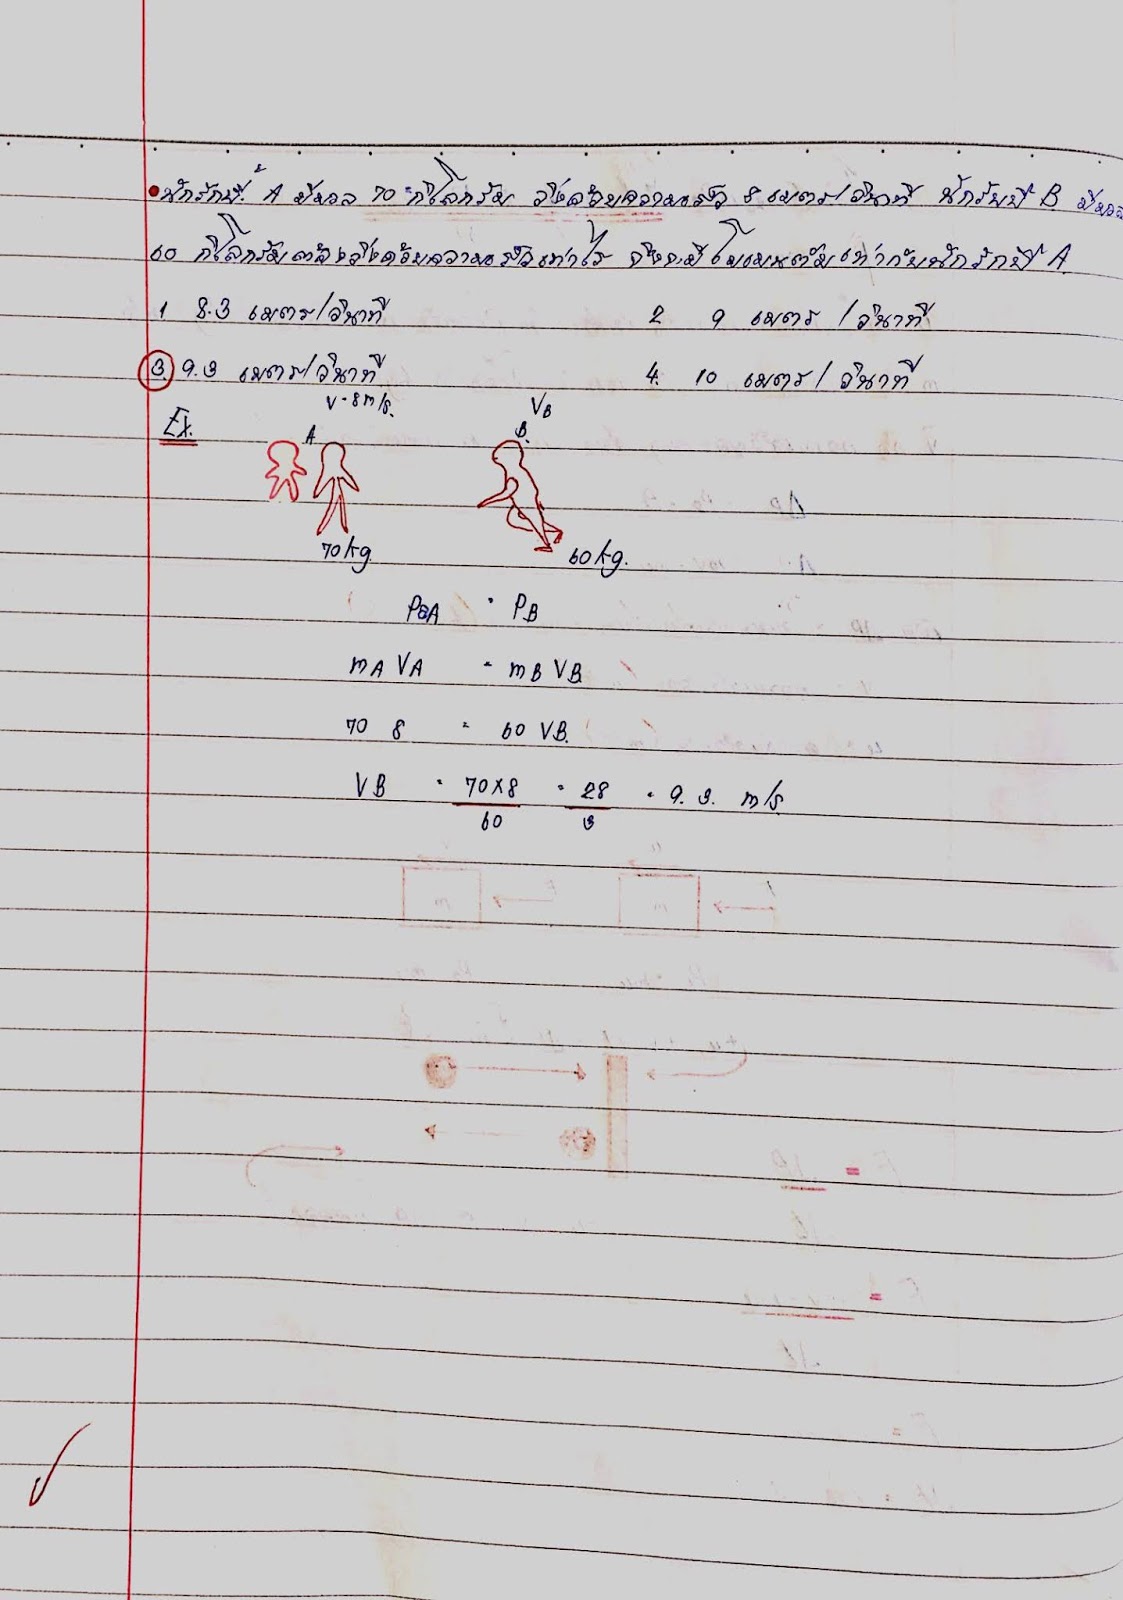 นักรักบี้ A มีมวล 70 กิโลกรัม วิ่งด้วยความเร็ว 8 เมตร/วินาที นักรักบี้ B มีมวล
60 กิโลกรัมต้องวิ่งด้วยความเร็วเท่าไร จึงจะมีโมเมนตัมเท่ากับนักรักบี้ A
1 8.3 เมตร/วินาที 2 9 เมตร/วินาที
3. 9.3 เมตร/วินาที 4. 10 เมตร/วินาที
Ex.
V = 8 m/s. VB
A B.
70 kg 60 kg.
PA = PB
mA VA = mB VB.
70 8 = 60 VB.
VB = 70×8 = 28 = 9.3. m/s
60 3